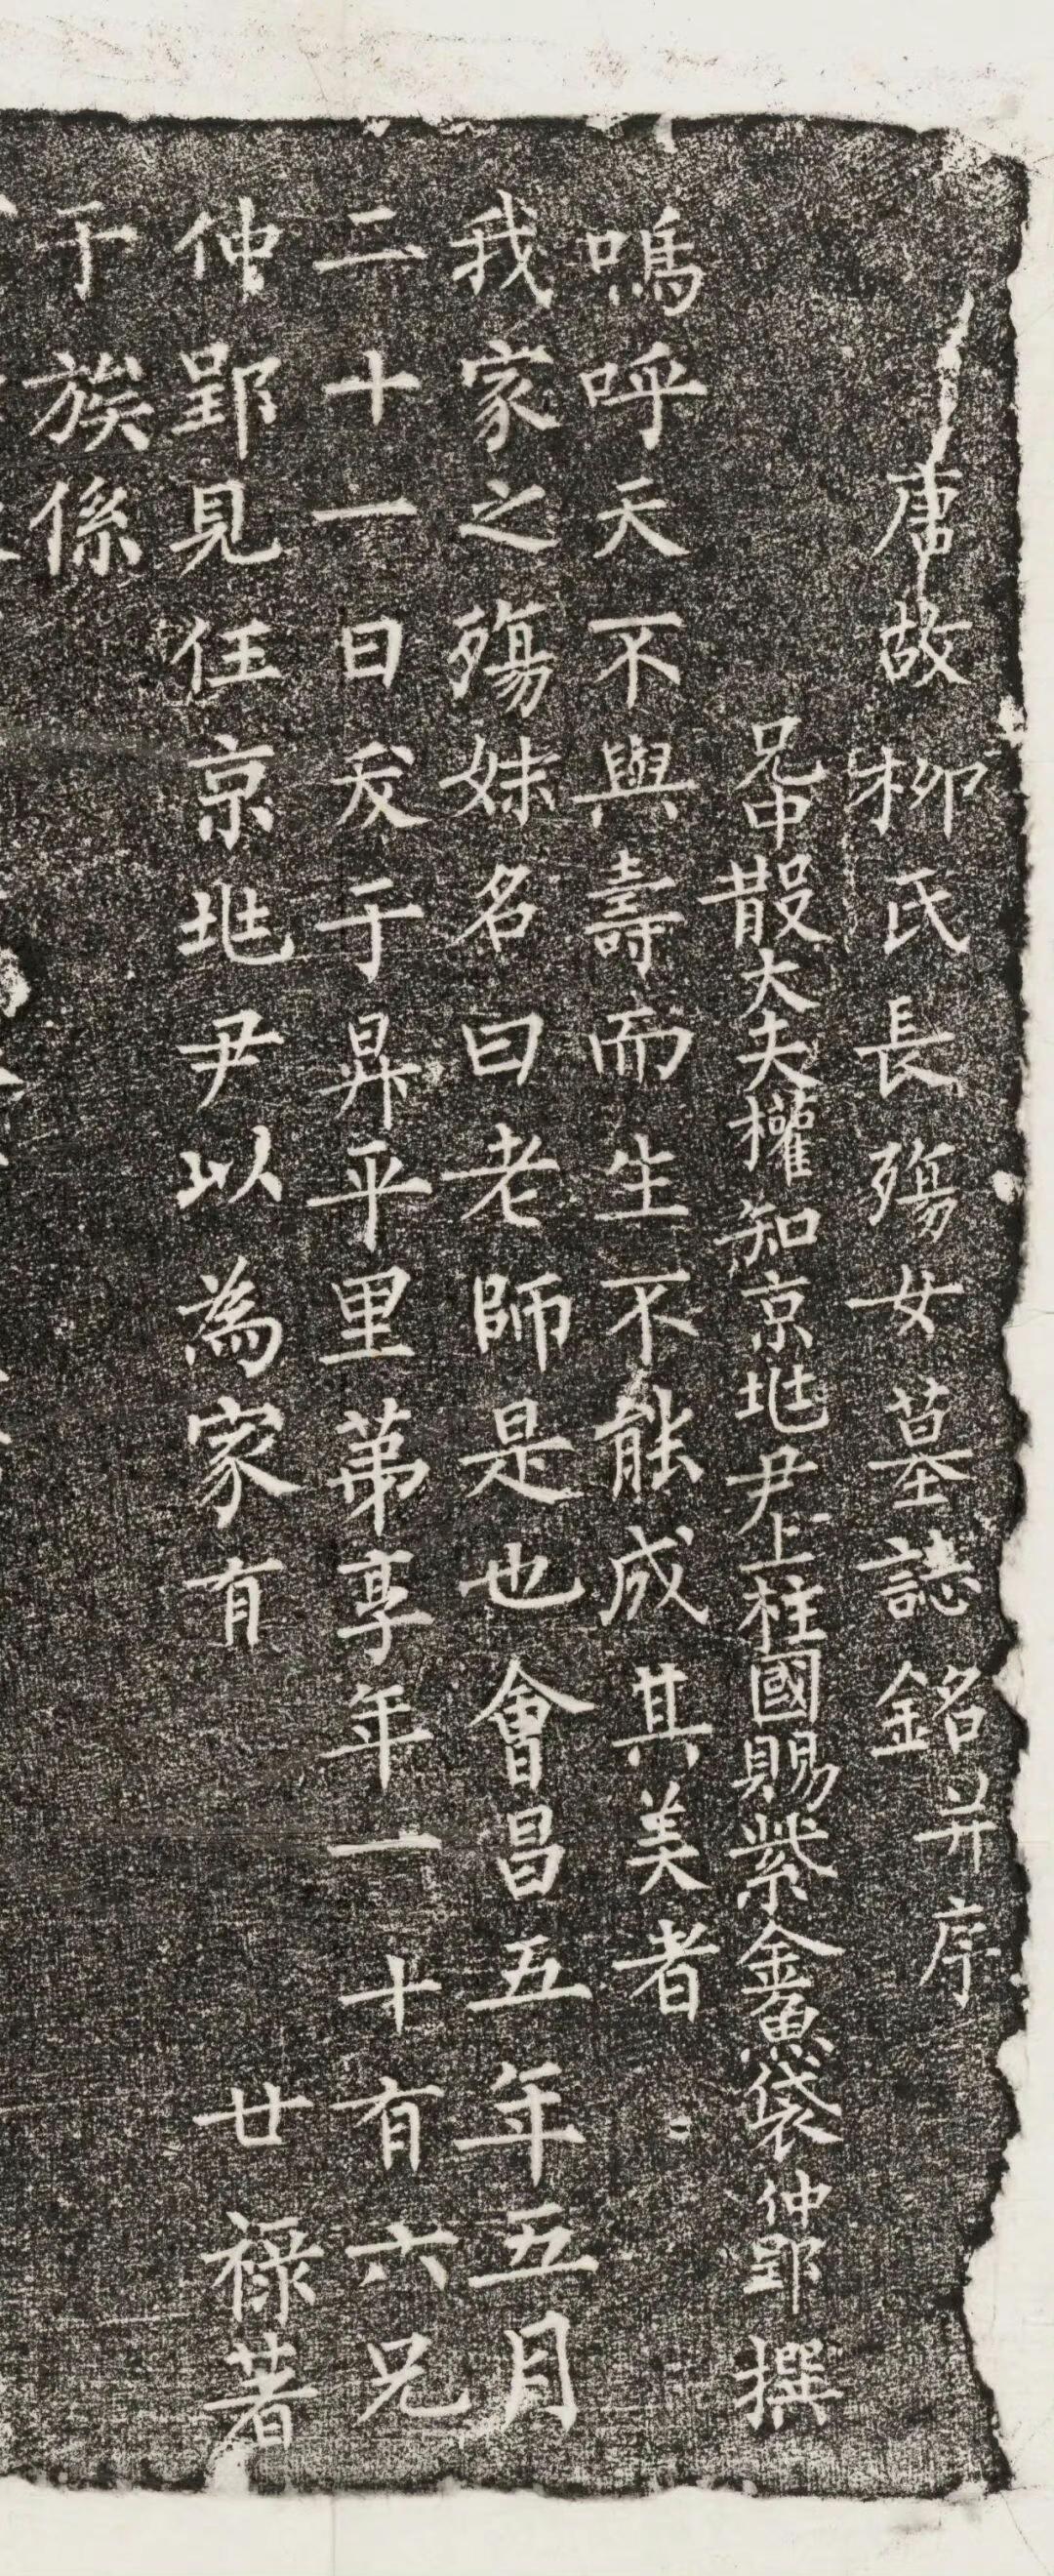 唐故柳氏長殤女墓誌銘并序
兄中散大夫權知京兆尹上柱國賜紫金魚袋仲郢撰
嗚呼天不與壽而生不能成其美者
我家之殤妹名曰老師是也會昌五年五月
二十一日夭于昇平里第享年一十有六兄
仲郢見任京兆尹以為家有 廿祿著
于族係